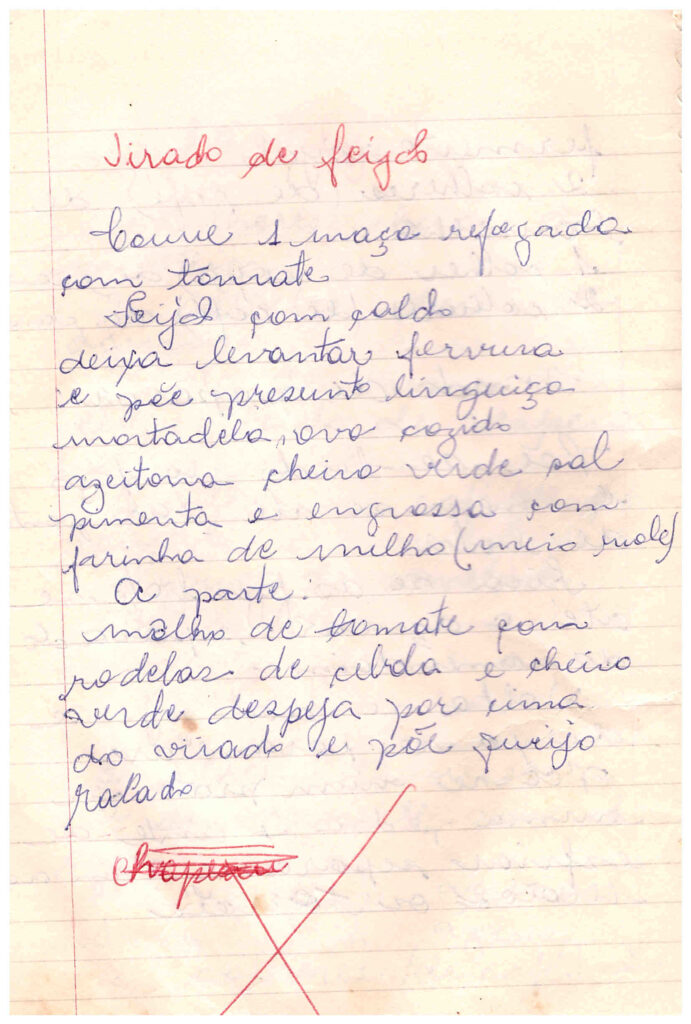 Virado de feijão
Couve 1 maço refogada
com tomate
Feijão com caldo
deixa levantar fervura
e põe presunto linguiça
mortadela, ovo cozido
azeitona cheiro verde sal
pimenta e engrossa com
farinha de milho (meio mole)
A parte:
molho de tomate com
rodelas de cebola e cheiro
verde despeja por cima
do virado e põe queijo
ralado